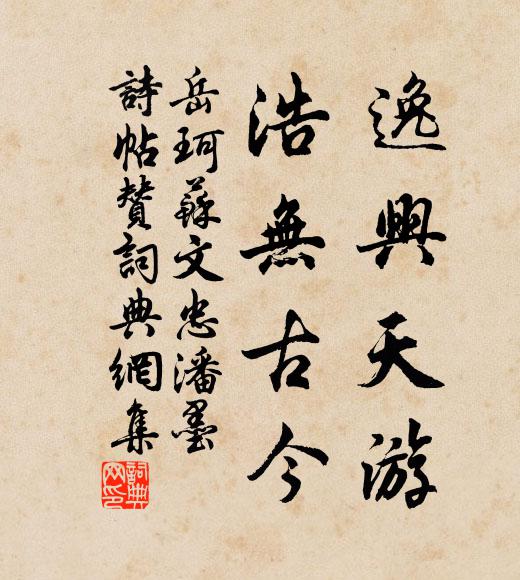 逸興天游
浩無古今
岳珂蘇文忠潘墨
詩帖贊詞典網集
詞典網印